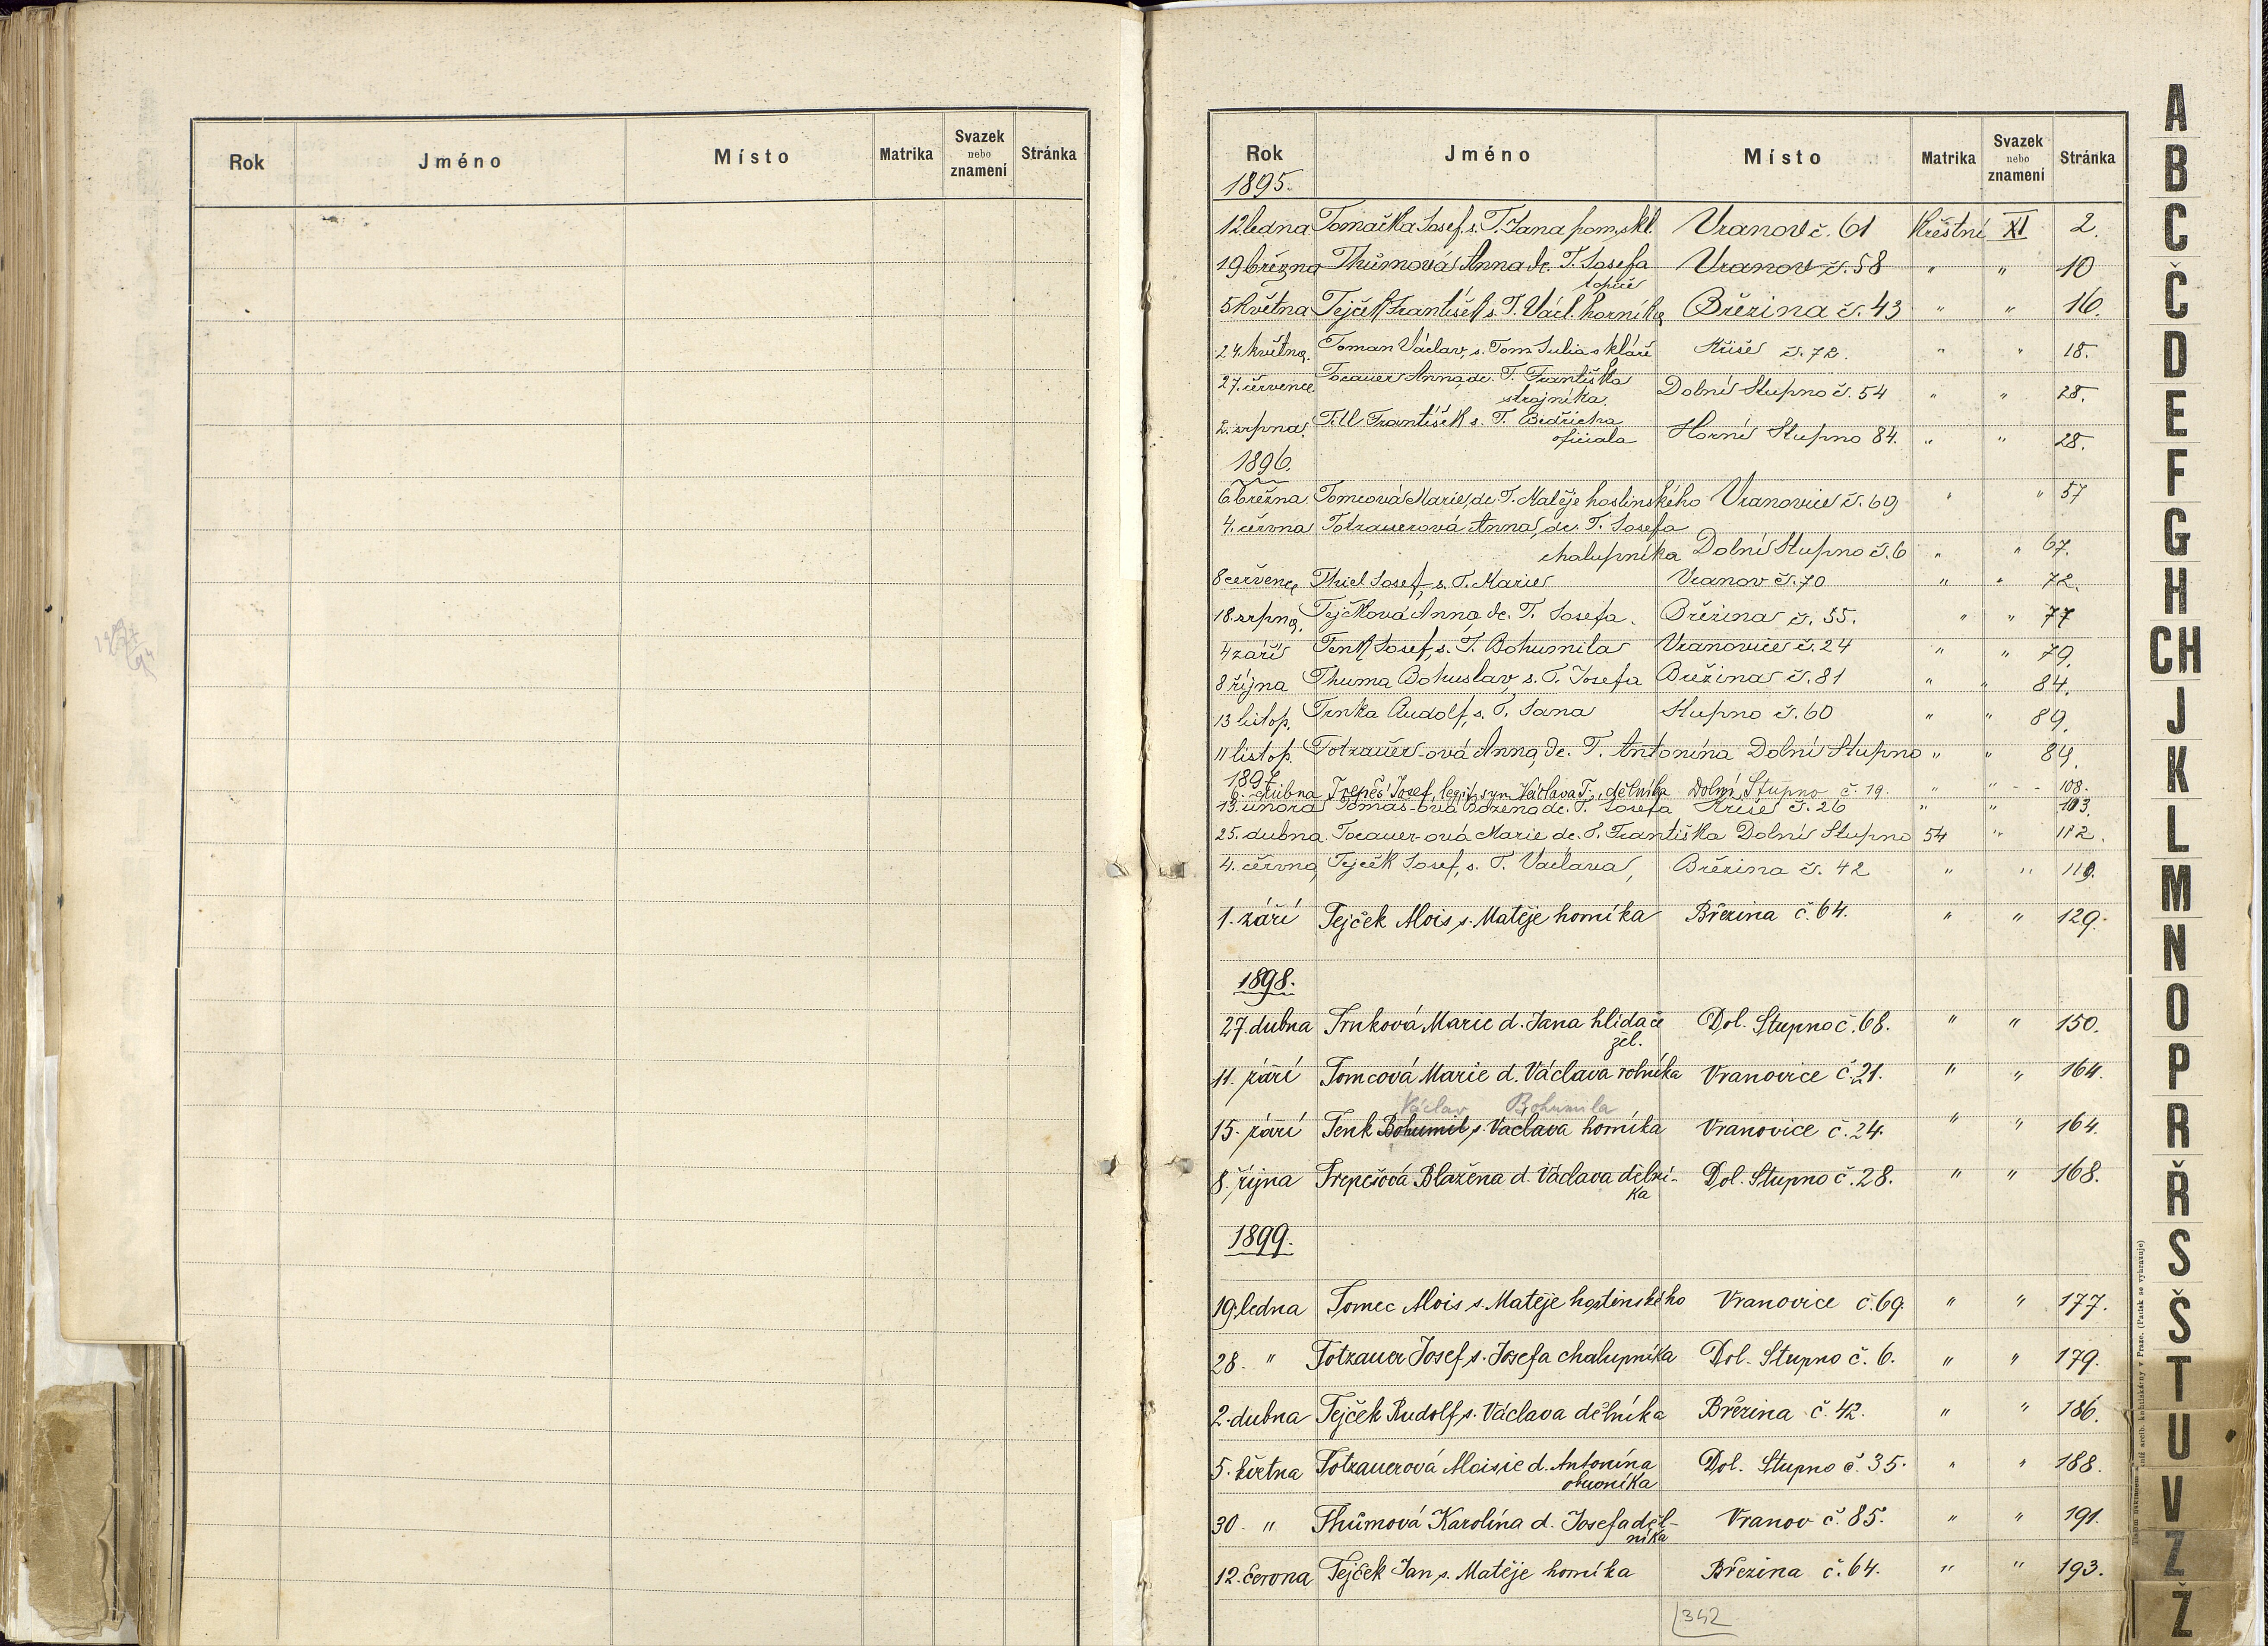 Rok Jméno Místo Matrika Svazek nebo znamení Stránka
Rok Jméno Místo Matrika Svazek nebo znamení Stránka
1895.
12 ledna Tomačka Josef, s. T. Jana pom. skl. Vranov č. 61 Křestní XI 2.
19 března Thůmová Anna dc. T. Josefa Vranov č. 58 " " 10
topiče
5 května Tejček František s. T. Václ. horníka Březina č. 43 " " 16.
24. května. Toman Václav, s. Tom. Julia skláře Kříše č. 72. " " 18.
27. července Tocauer Anna, dc. T. Františka
strojníka. Dolní Stupno č. 54 " " 28.
2. srpna. Till František s. T. Bedřicha
oficiala Horní Stupno 84. " " 28.
1896.
6 března Tomcová Marie, dc. T. Matěje hostinského Vranovice č. 69 " " 57
4. června Totzauerová Anna, dc. T. Josefa
chalupníka Dolní Stupno č. 6 " " 67.
8 července Thiel Josef, s. T. Marie Vranov č. 70 " " 72.
18. srpna. Tejčková Anna dc. T. Josefa. Březina č. 55. " " 77
4 září Tenk Josef, s. T. Bohumila Vranovice č. 24 " " 79.
8 října Thuma Bohuslav, s. T. Josefa Březina č. 81 " " 84.
13 listop. Trnka Rudolf, s. T. Jana Stupno č. 60 " " 89.
11 listop. Totzauer-ová Anna, dc. T. Antonína Dolní Stupno " " 89.
1897
6. dubna Trepeš Josef, legit. syn Václava T., dělníka Dolní Stupno č. 19. " " 108.
13. února Tomáš-ová Božena dc. T. Josefa Kříše č. 26 " " 103.
25. dubna Tocauer-ová Marie dc. T. Františka Dolní Stupno 54 " 112.
4. června, Tejček Josef, s. T. Václava, Březina č. 42 " " 119.
1. září Tejček Alois s. Matěje horníka Březina č. 64. " " 129.
1898.
27. dubna Trnková Marie d. Jana hlídače Dol. Stupno č. 68. " " 150.
žel.
11. září Tomcová Marie d. Václava rolníka Vranovice č. 21. " " 164.
Václav Bohumila
15. září Tenk Bohumil s. Václava horníka Vranovice č. 24. " " 164.
8. října Trepešová Blažena d. Václava dělní- Dol. Stupno č. 28. " " 168.
ka
1899.
19. ledna Tomec Alois s. Matěje hostinského Vranovice č. 69. " " 177.
28. " Totzauer Josef s. Josefa chalupníka Dol. Stupno č. 6. " " 179.
2. dubna Tejček Rudolf s. Václava dělníka Březina č. 42. " " 186.
5. května Totzauerová Aloisie d. Antonína Dol. Stupno č. 35. " " 188.
obuvníka
30. " Thůmová Karolína d. Josefa děl- Vranov č. 85. " " 191.
níka
12. června Tejček Jan s. Matěje horníka Březina č. 64. " " 193.
342
A
B
C
Č
D
E
F
G
H
CH
J
K
L
M
N
O
P
R
Ř
S
Š
T
U
V
Z
Ž